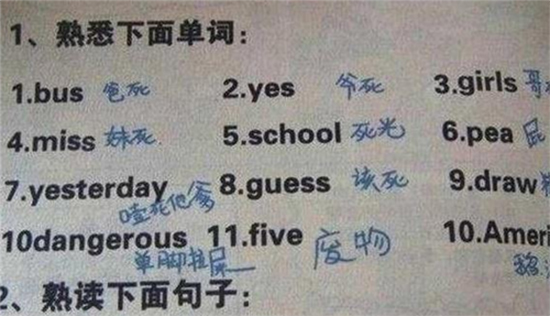 1、熟悉下面单词：
1.bus 爸死 2.yes 爷死 3.girls 哥
4.miss 妹死 5.school 死光 6.pea 屁
7.yesterday 噎死他爹 8.guess 该死 9.draw
10dangerous 单脚拉屎 11.five 废物 10.Ameri
2、熟读下面句子：